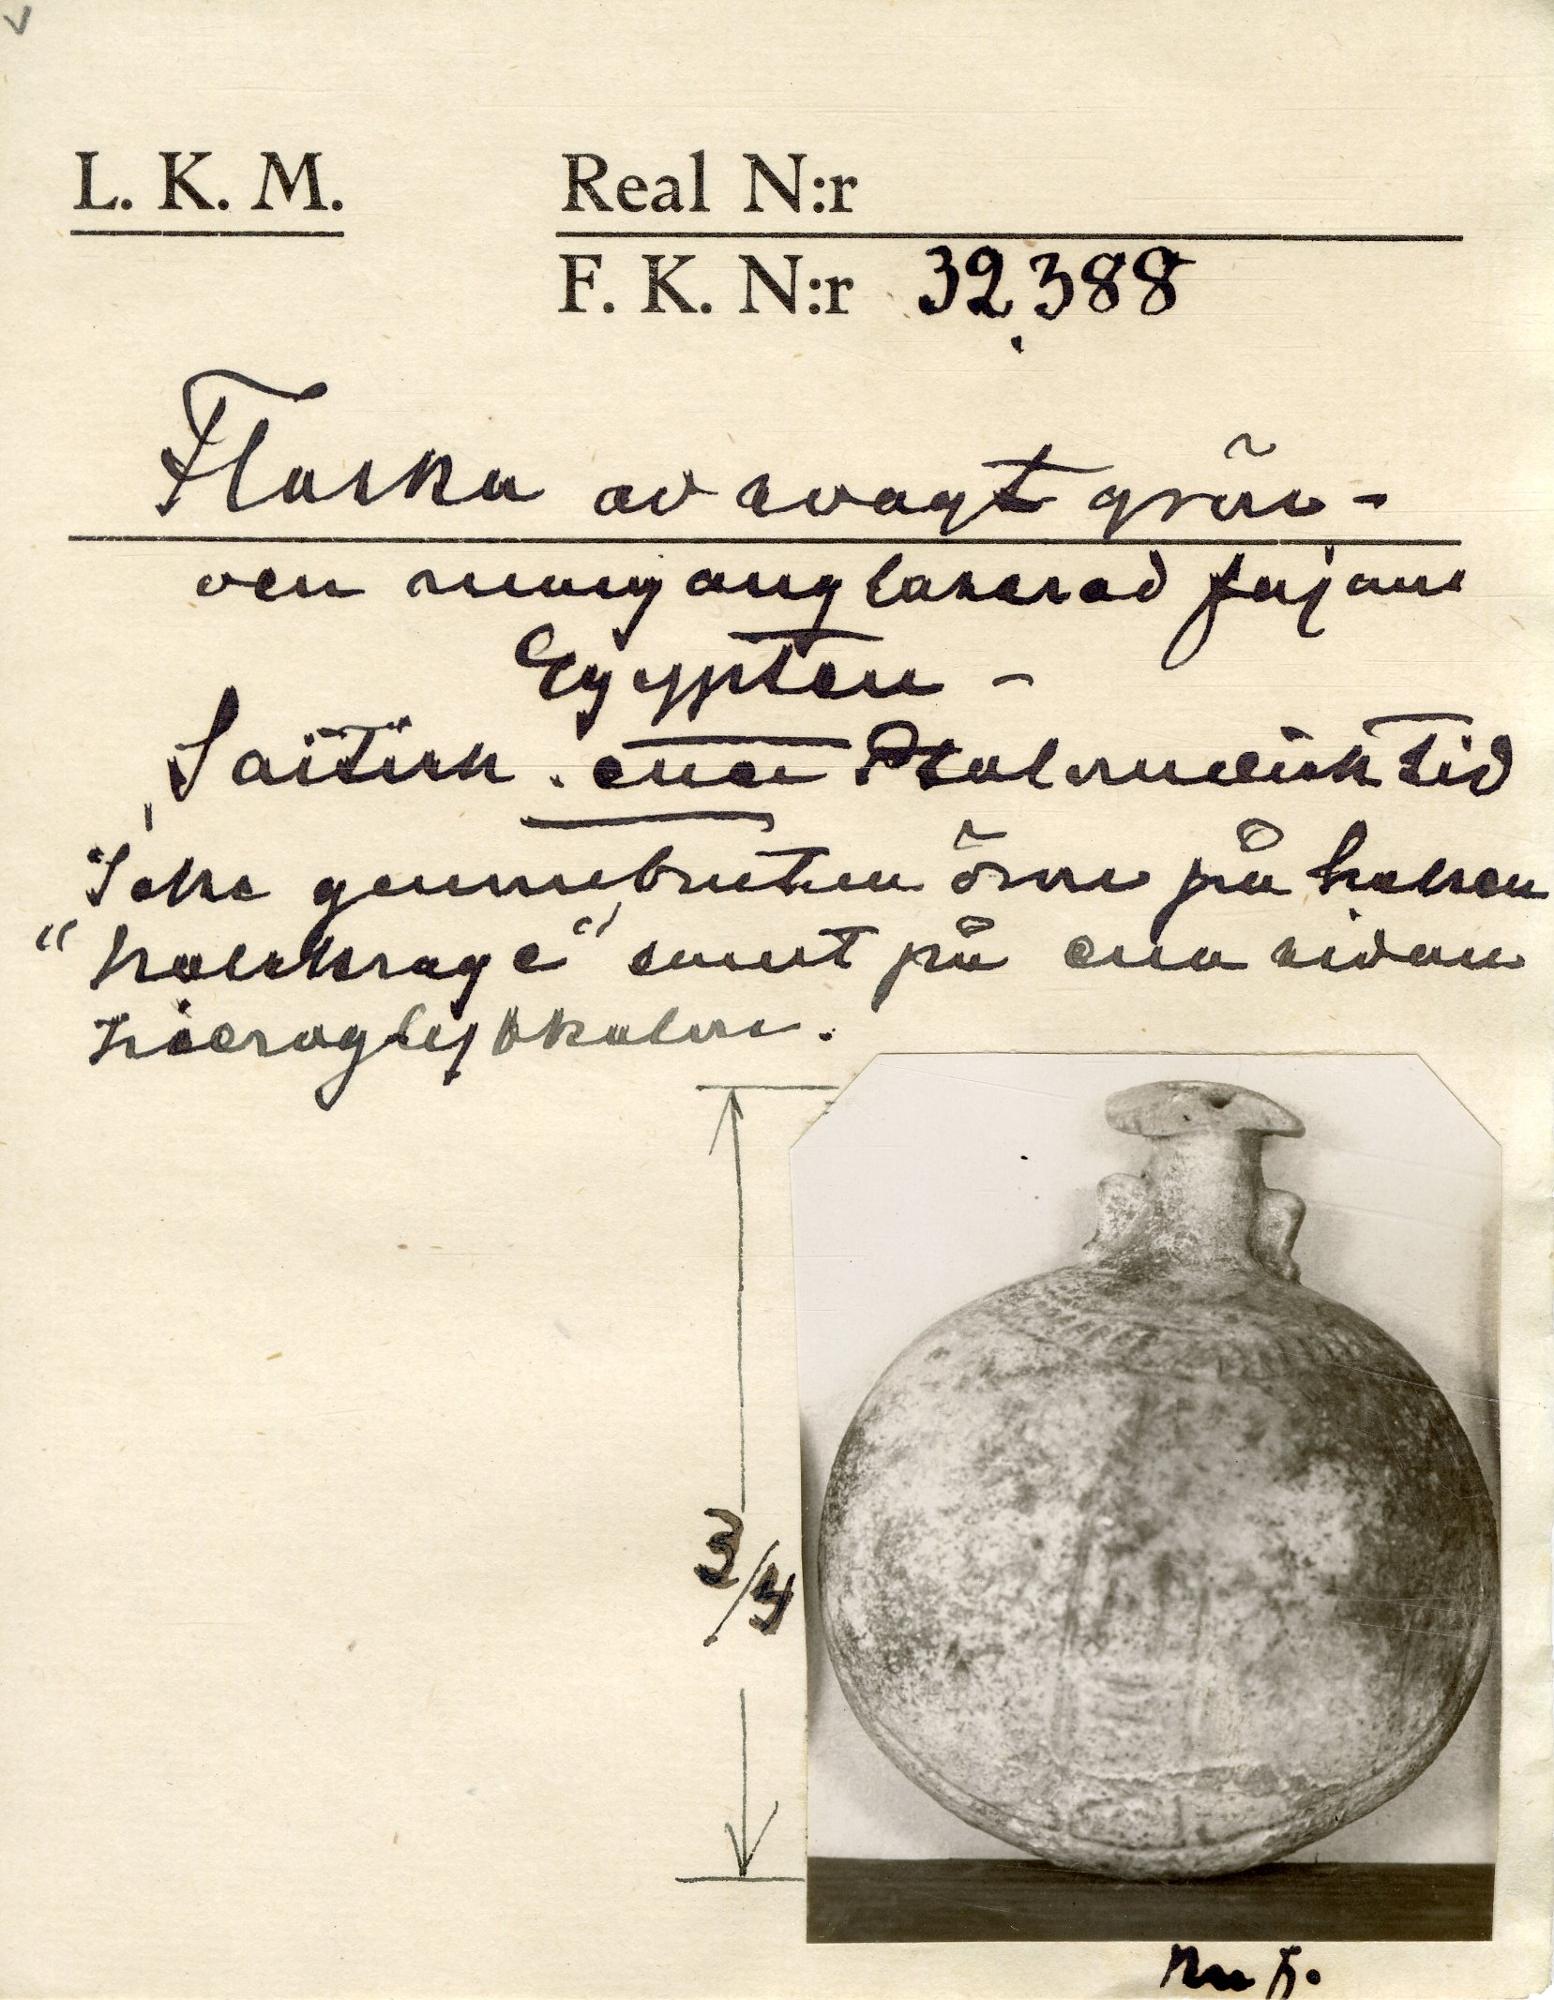 L. K. M.
Real N:r
F. K. N:r 32,388
Flaska av svagt grön-
och manganglaserad fajans
Egypten -
Saïtisk eller Ptolemeisk tid
Icke genombrutna öron på halsen
"halskrage" samt på ena sidan
hieroglyfkolon.
3/4